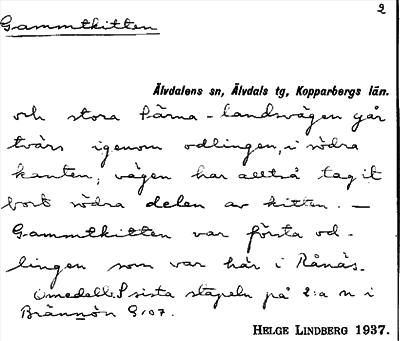 2
Gammtkitten
Älvdalens sn, Älvdals tg, Kopparbergs län.
och stora Särna-landsvägen går
tvärs igenom odlingen, i södra
kanten; vägen har alltså tagit
bort södra delen av kitten. —
Gammtkitten var första od-
lingen som var här i Rånäs.
Omedelb. sista stapeln på 2:a n i
Brännön 9107.
HELGE LINDBERG 1937.